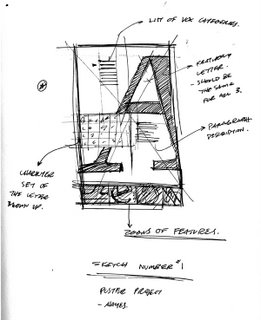 LIST OF VOX CATEGORIES.
FEATURED
LETTER.
- SHOULD BE
THE SAME
FOR ALL 3.
A
PARAGRAPH
DESCRIPTION.
CHARACTER
SET OF
THE LETTER
BLOWN UP.
ZOOMS OF FEATURES.
SKETCH NUMBER #1
POSTER PROJECT